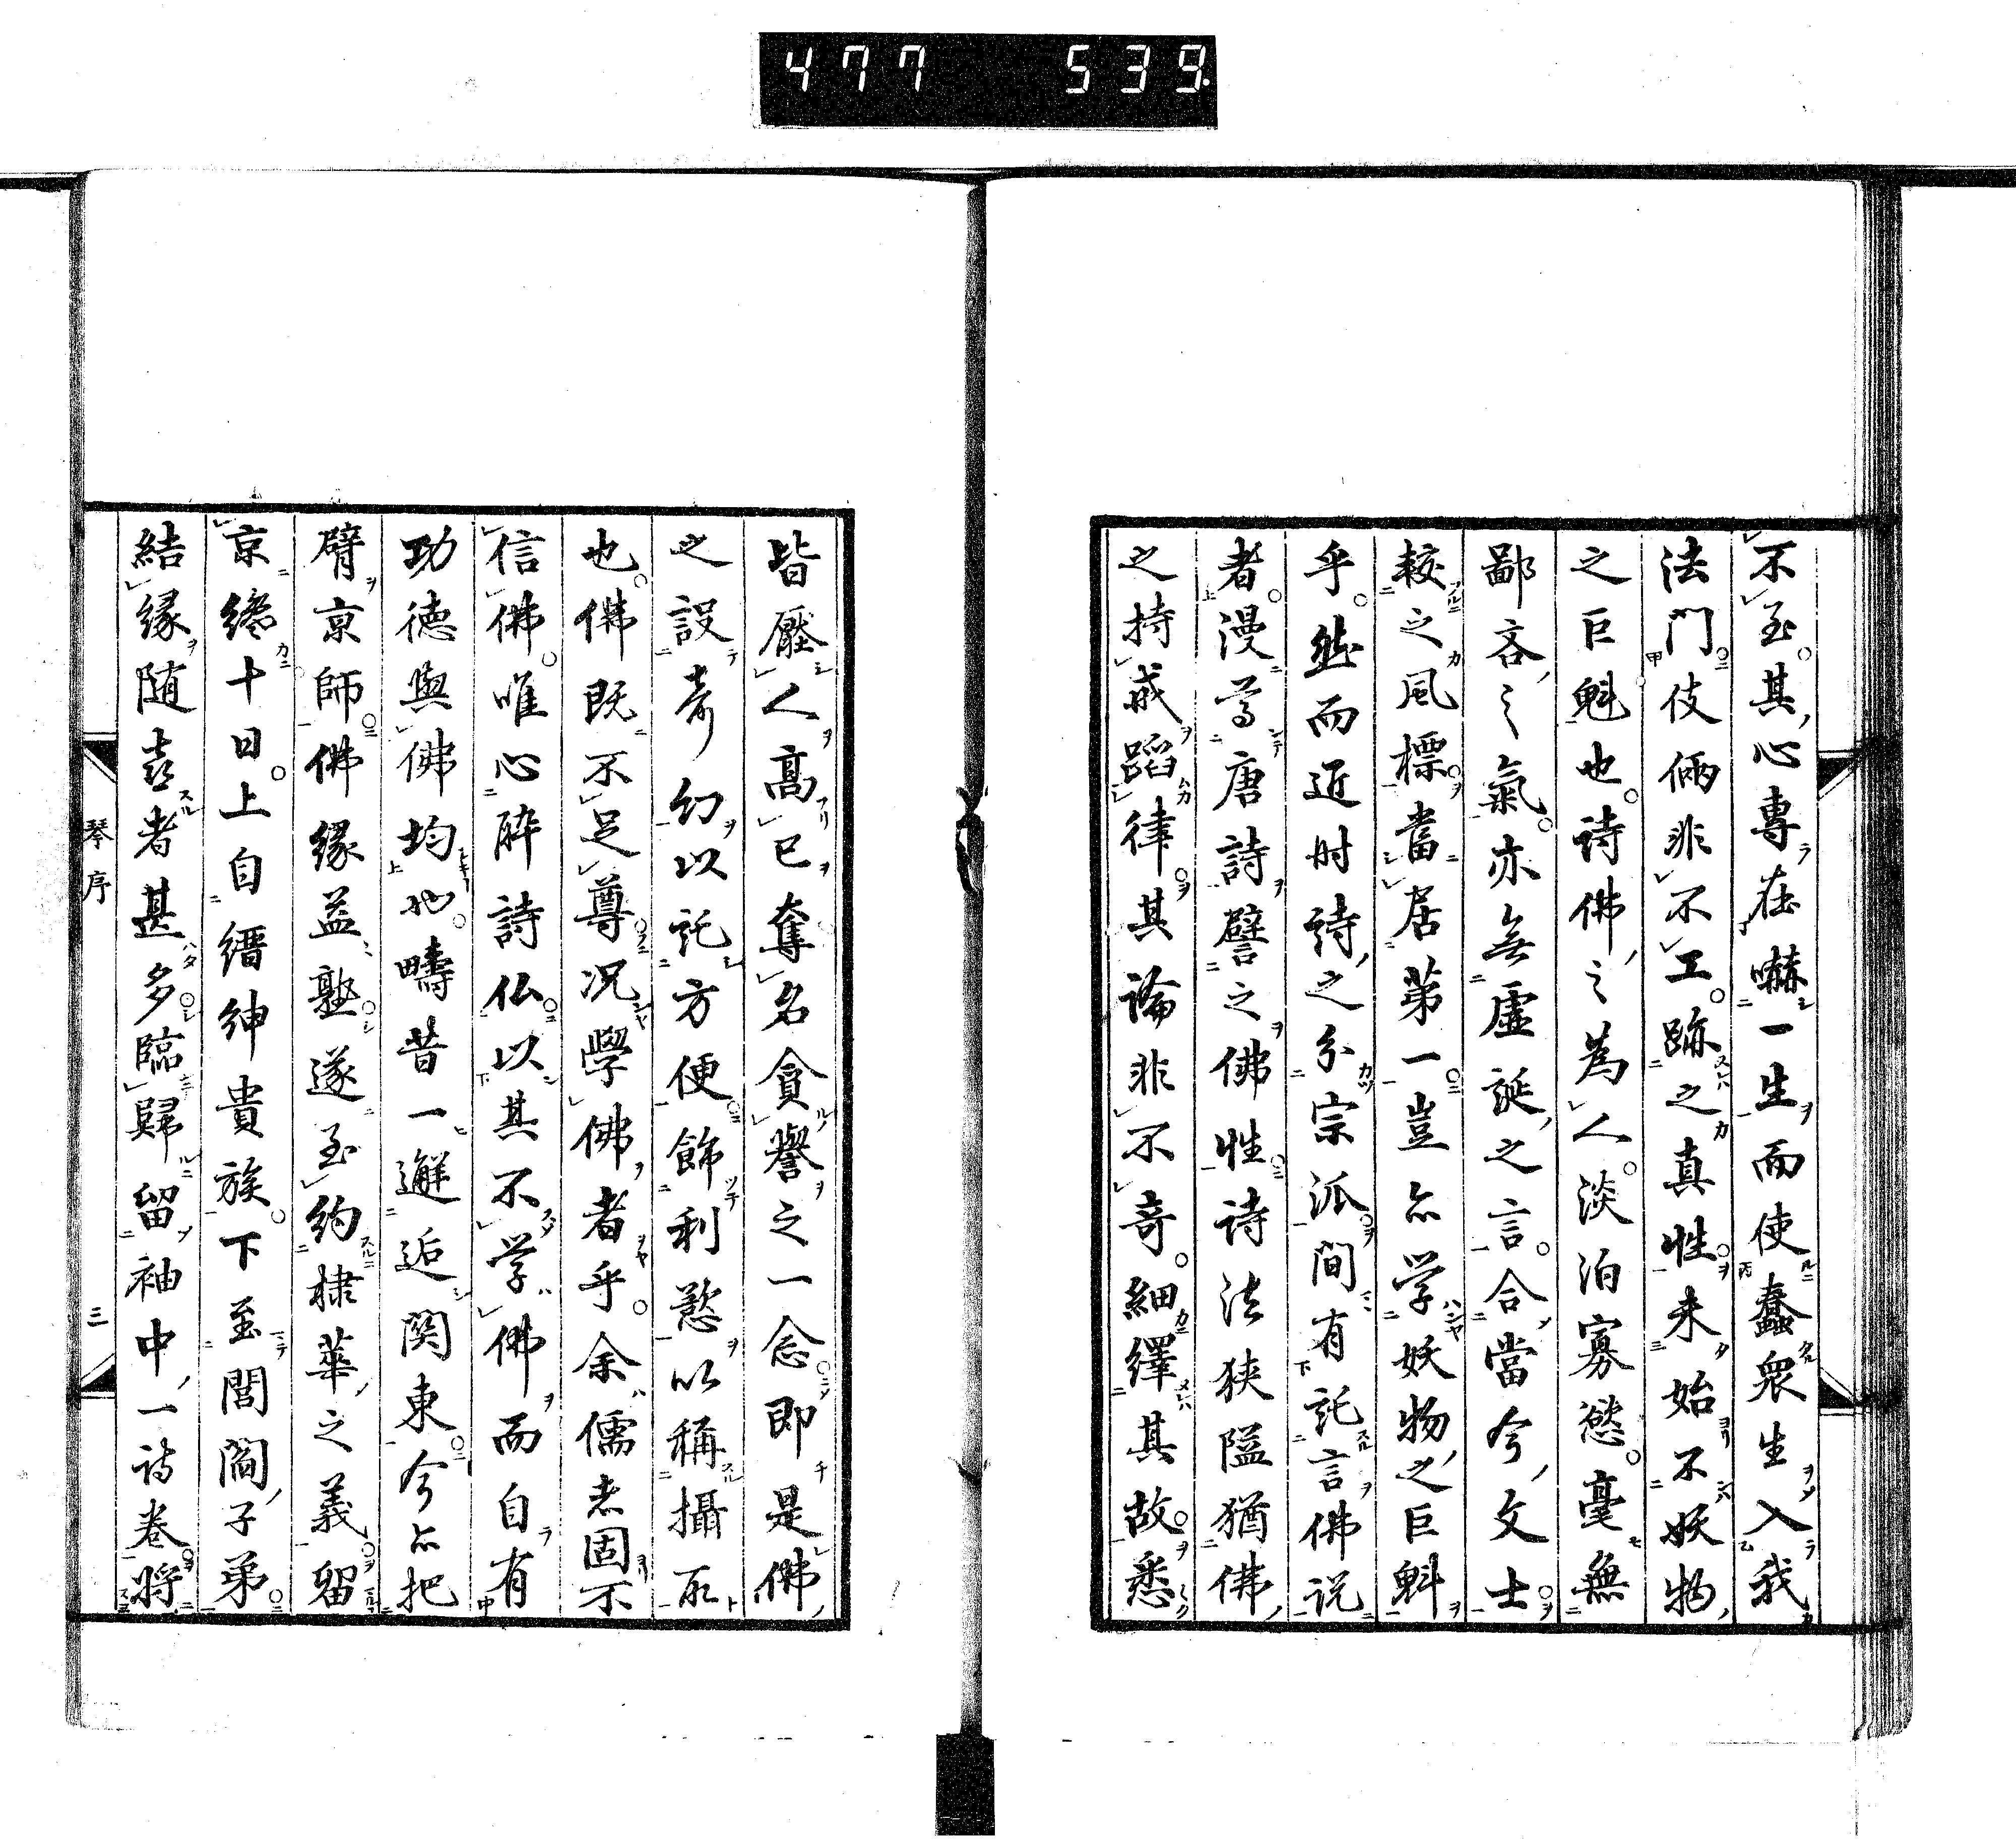 477 539.
不至其心專在嚇一生而使蠢衆生入我
法門伎倆非不工跡之真性未始不妖物
之巨魁也詩佛之為人淡泊寡慾毫無
鄙吝之氣亦無虛誕之言合當今文士
較之風標當居第一豈亦学妖物之巨魁
乎然而近时詩之分宗派間有託言佛说
者漫尊唐詩譬之佛性诗法狹隘猶佛
之持戒蹈律其論非不奇細繹其故悉
皆壓人高已奪名貪譽之一念即是佛
之設奇幻以託方便飾利慾以稱攝取
也佛既不足尊况學佛者乎余儒者固不
信佛唯心酔詩仏以其不学佛而自有
功德與佛均也疇昔一邂逅関東今亦把
臂京師佛緣益熟遂至約棣華之義留
京纔十日上自縉紳貴族下至閭閻子弟
結緣随喜者甚多臨歸留袖中一诗卷將
琴序
三